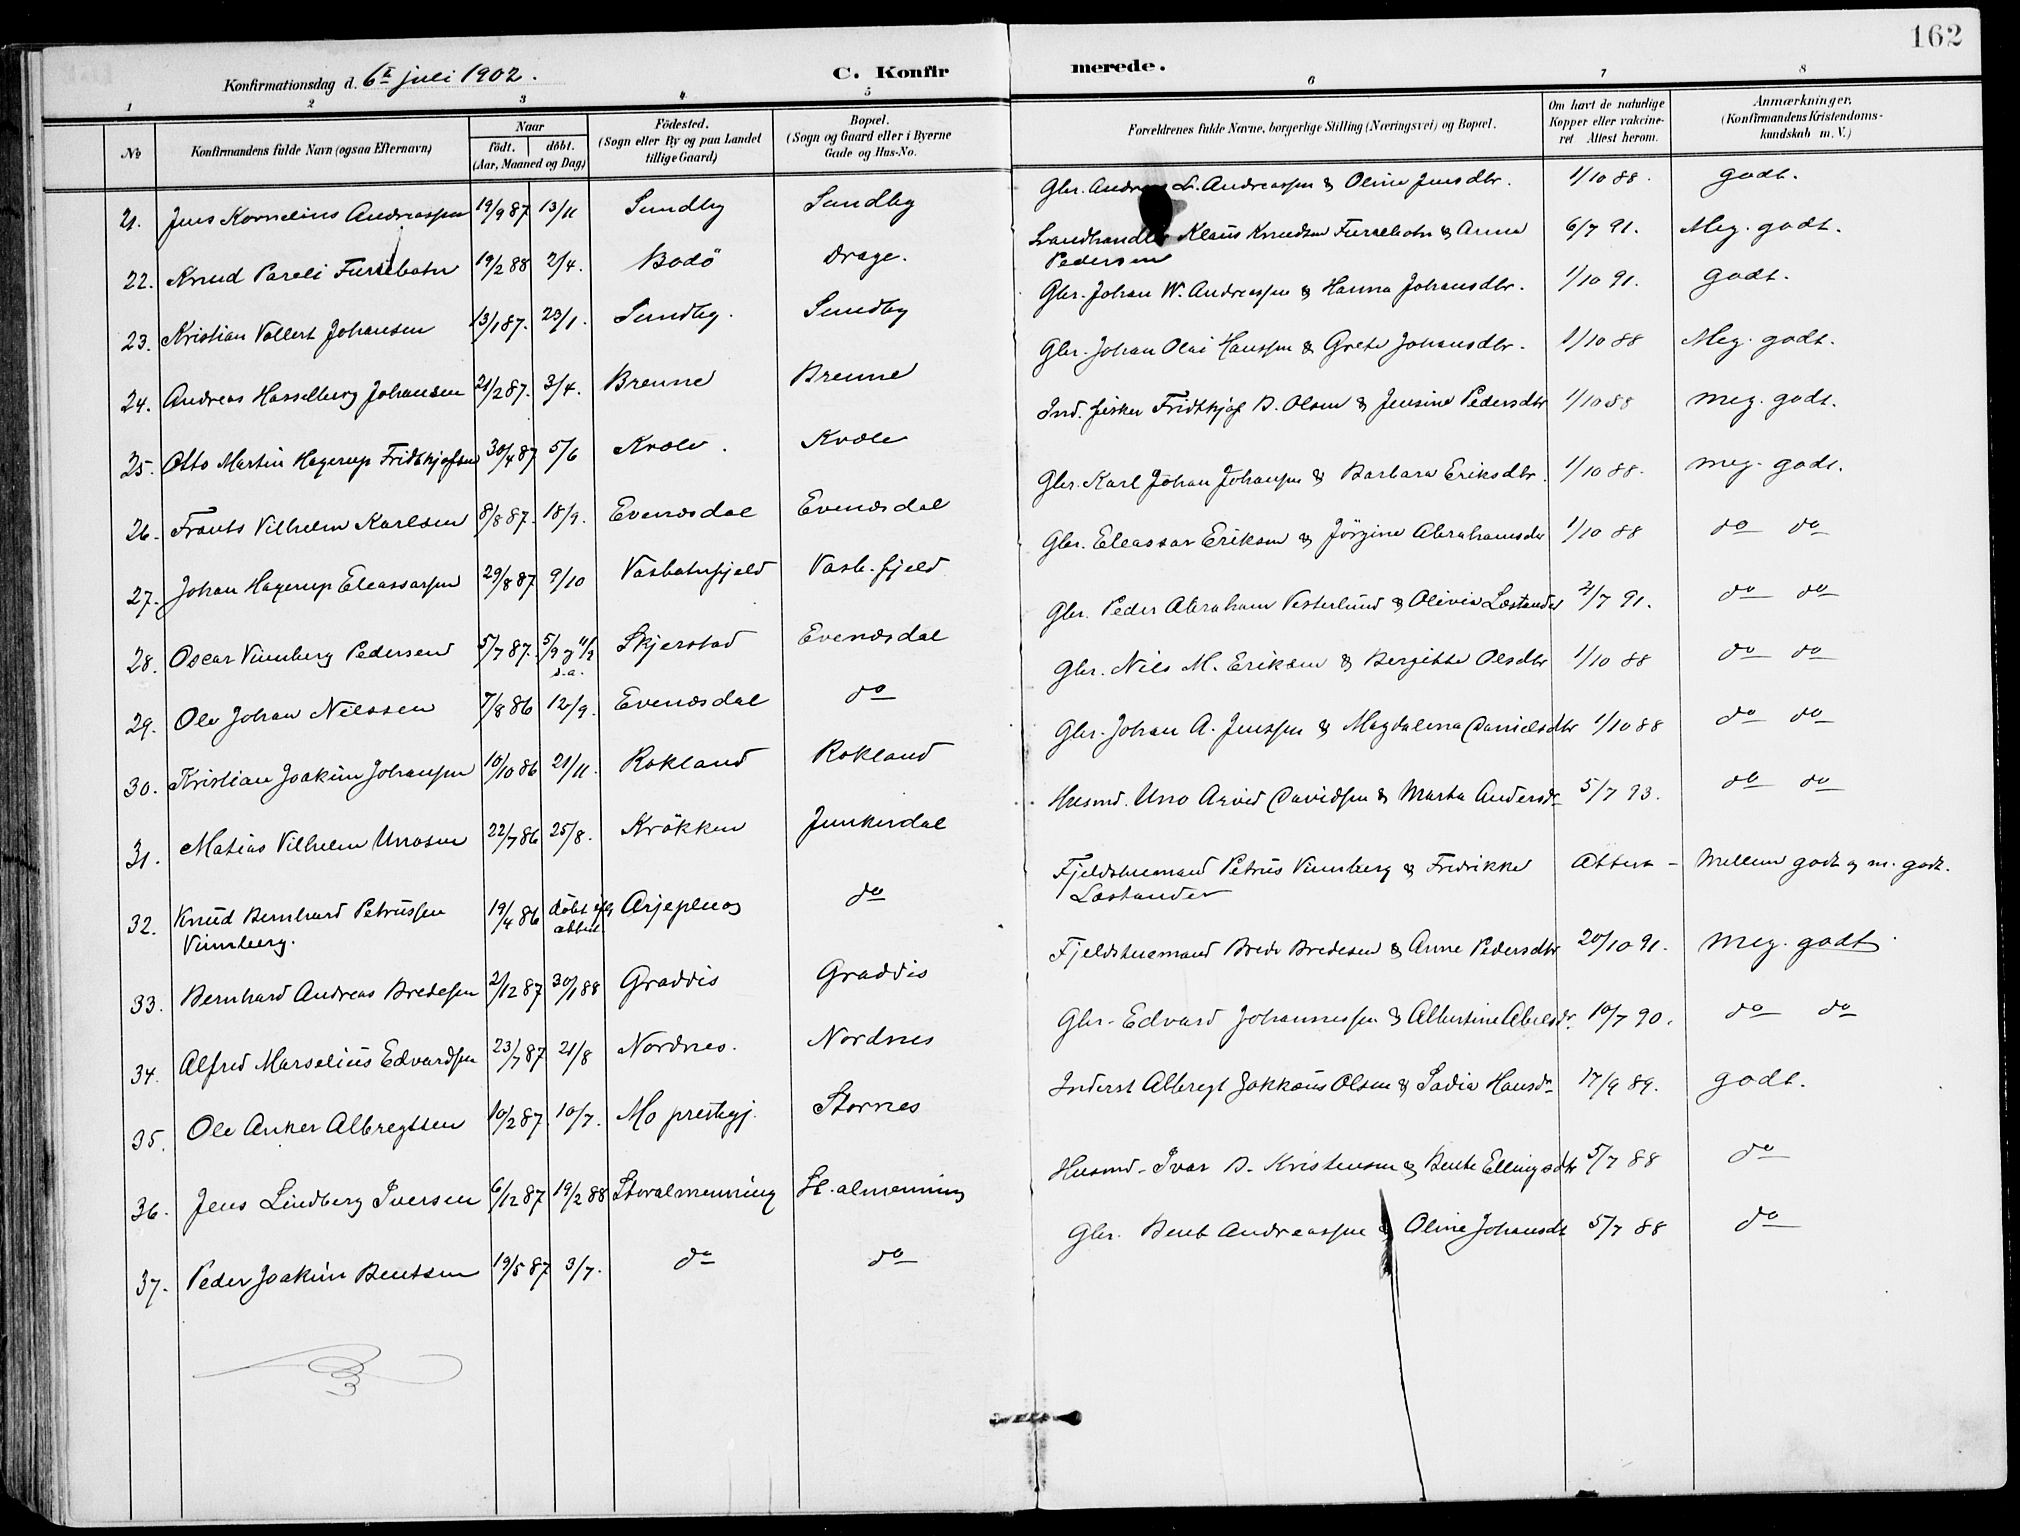 162
Konfirmationsdag d. 6te juli 1902.
C. Konfirmerede.
1 2 3 4 5 6 7 8
No
Konfirmandens fulde Navn (ogsaa Efternavn)
Naar
födt. döbt.
(Aar, Maaned og Dag)
Födested.
(Sogn eller By og paa Landet
tillige Gaard)
Bopæl.
(Sogn og Gaard eller i Byerne
Gade og Hus-No.
Forældrenes fulde Navne, borgerlige Stilling (Næringsvei) og Bopæl.
Om havt de naturlige
Kopper eller vakcine-
ret Attest herom.
Anmærkninger,
(Konfirmandens Kristendoms-
kundskab m. V.)
21. Jens Kornelius Andreassen 19/9 87 13/11 Sundby Sundby Gbr. Andreas L. Andreassen & Oline Jensdtr. 1/10 88. godt.
22. Knud Pareli Furrebotn 19/2 88 2/4. Bodö Drage. Landhandler Klaus Knudsen Furrebotn & Anna
Pedersen 6/7 91. Meg. godt.
23. Kristian Vollert Johansen 13/1 87. 23/1. Sundby. Sundby Gbr. Johan W. Andreassen & Hanna Johansdtr. 1/10 91. godt.
24. Andreas Hasselberg Johansen 21/2 87. 3/4. Brenne Brenne Gbr. Johan Olai Hanssen & Grete Johansdtr. 1/10 88 Meg. godt.
25. Otto Martin Hagerup Fridtkjofsen 30/4 87 5/6 Kvæle. Kvæle Ind. fisker Fridtkjof B. Olsen & Jensine Pedersdtr 1/10 88 meg. godt.
26. Frants Vilhelm Karlsen 8/8 87. 18/9. Evenæsdal Evenæsdal Gbr. Karl Johan Johansen & Barbara Eriksdtr. 1/10 88. meg. godt.
27. Johan Hagerup Eleassarsen 29/8 87 9/10 Vasbotnfjeld Vasb.fjeld Gbr. Eleassar Eriksen & Jörgine Abrahamsdtr 1/10 88 do do
28. Oscar Vinnberg Pedersen 5/7 87. 5/9 7 11/9
s.a. Skjerstad Evenæsdal Gbr. Peder Abraham Vesterlund & Olivia Lestander 2/7 91. do do
29. Ole Johan Nilssen 7/8 86 12/9. Evenæsdal do Gbr. Nils M. Eriksen & Bergitte Olsdtr 1/10 88 do do
30. Kristian Joakim Johansen 10/10 86 21/11. Rokland Rokland Gbr. Johan A. Jenssen & Magdalena Danielsdtr 1/10 88 do do
31. Matias Vilhelm Unosen 22/7 86 25/8. Krökken Junkerdal Husmd. Uno Arvid Davidsen & Marta Andersdr 5/7 93. do do
32. Knud Bernhard Petrussen
Vinnberg. 19/4 86 döbt iflg
attest Arjepluog do Fjeldstuemand Petrus Vinnberg & Fredrikke
Lestander Attest - Mellem godt og m. godt.
33. Bernhard Andreas Bredesen 2/12 87 30/1 88 Graddis Graddis Fjeldstuemand Brede Bredesen & Anne Pedersdtr 20/10 91. Meg. godt.
34. Alfred Marselius Edvardsen 23/7 87 21/8 Nordnes. Nordnes Gbr. Edvard Johannessen & Albertine Abelsdr. 10/7 90. do do
35. Ole Anker Albregtsen 10/2 87 10/7. Mo prestegj. Stornes Inderst Albregt Jakkæus Olsen & Sadia Hansdr 17/9 89. godt.
36. Jens Lindberg Iversen 6/12 87 19/2 88 Storalmenning St.almenning Husmd. Ivar B. Kristensen & Bente Ellingsdtr 5/7 88 do
37. Peder Joakim Bentsen 19/5 87 3/7. do do Gbr. Bent Andreassen & Oline Johansdt 5/7 88 do